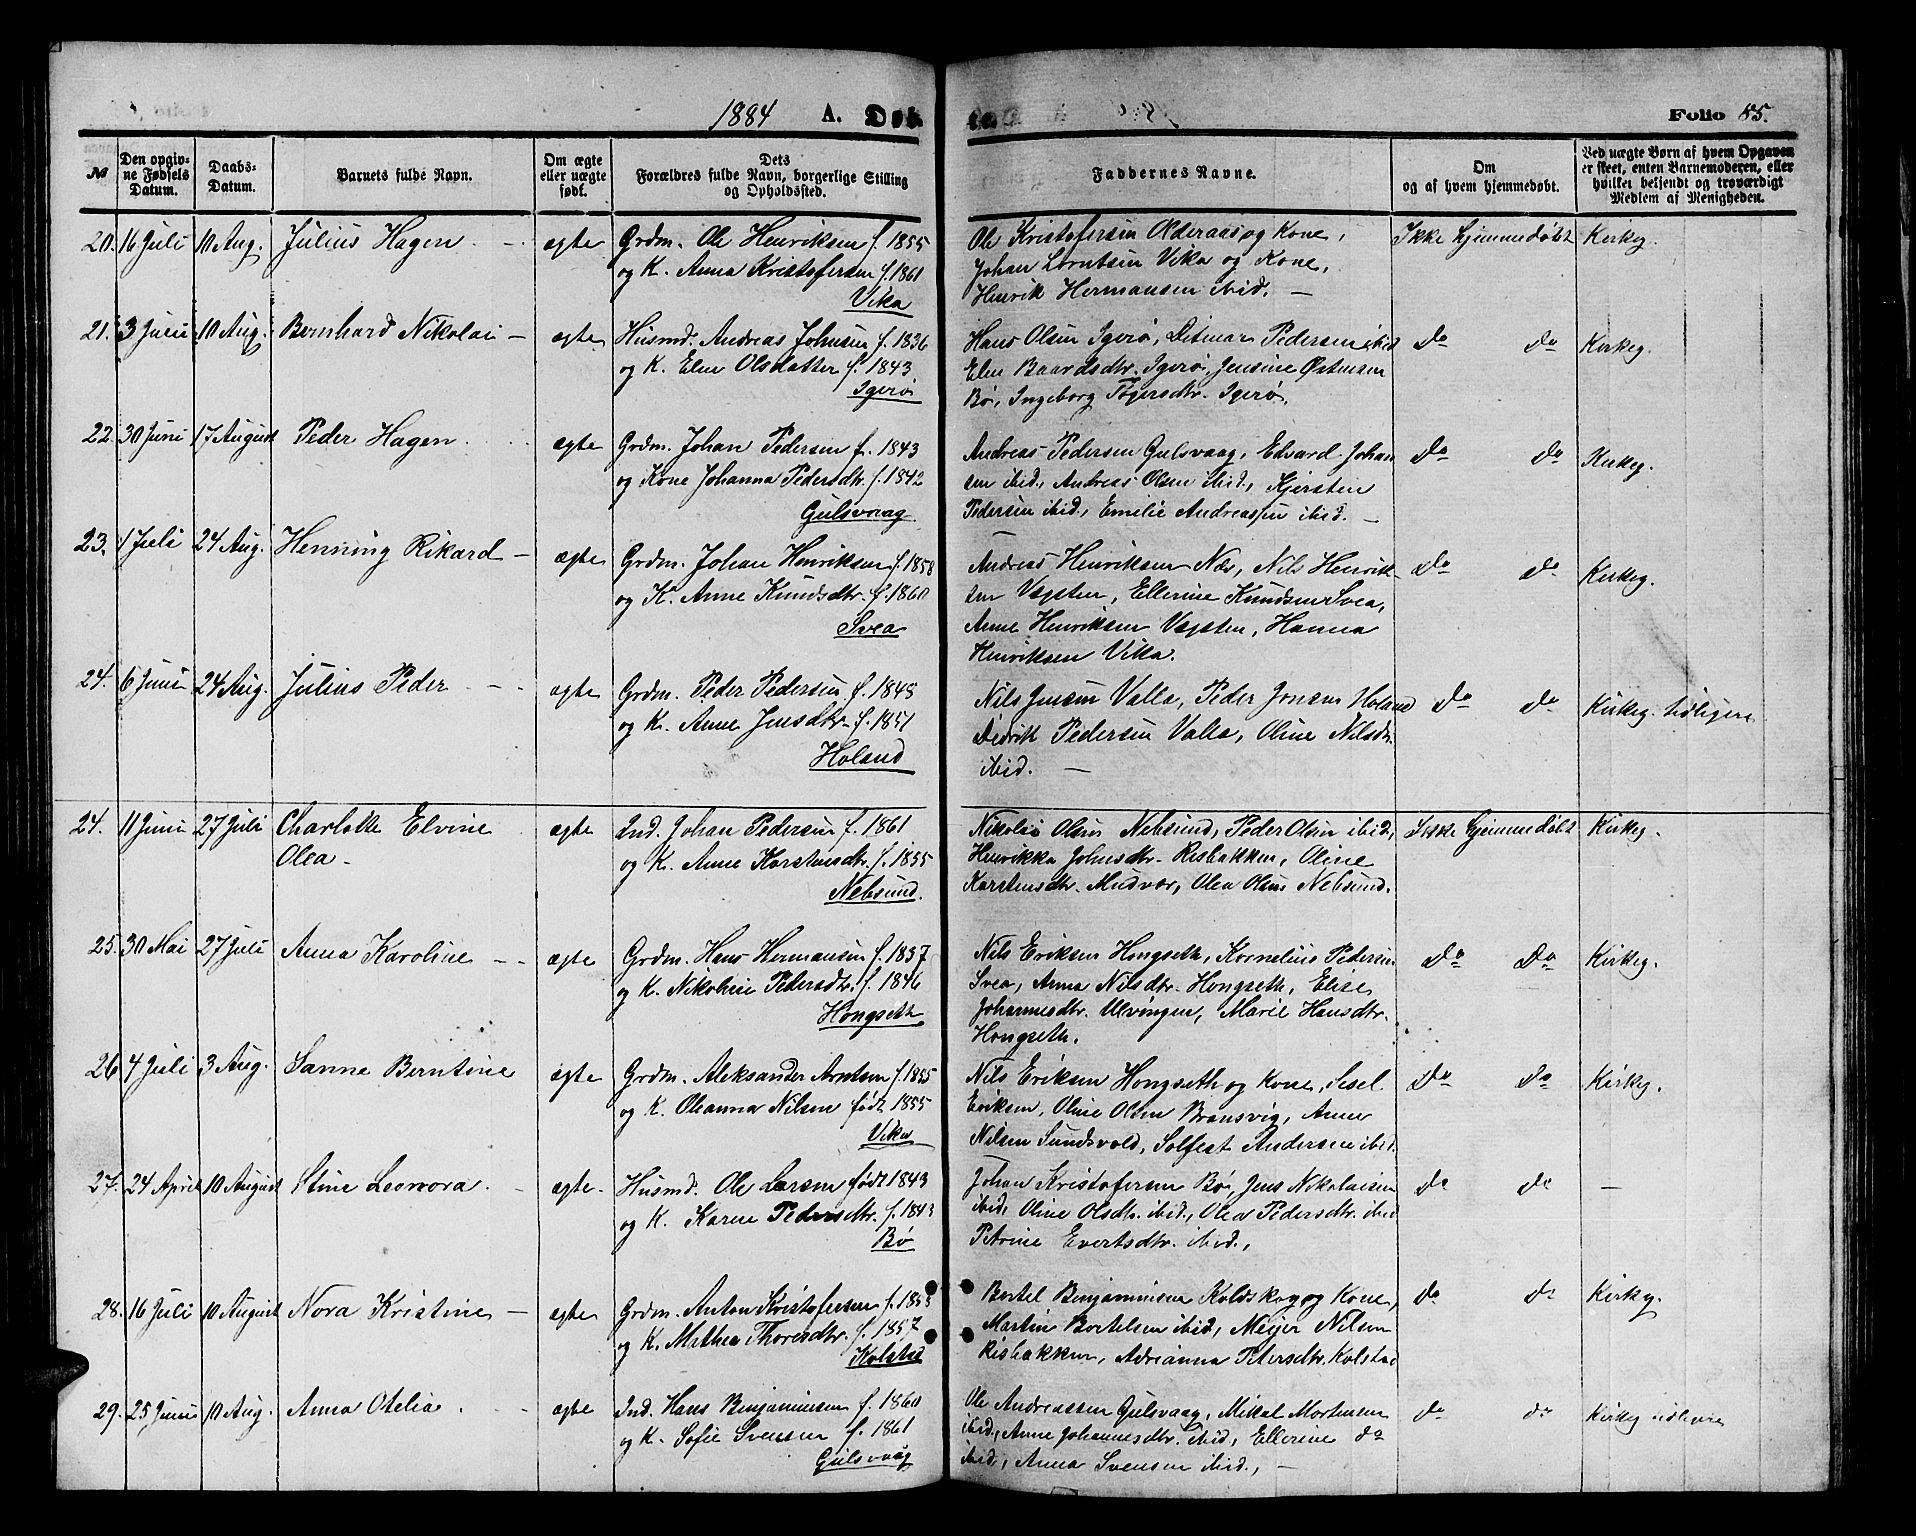 1884 A. Døb
te. Folio 85.
№
Den opgivne Fødsels Datum.
Daabs-Datum.
Barnets fulde Navn.
Om ægte eller uægte født.
Dets Forældres fulde Navn, borgerlige Stilling og Opholdssted.
Faddernes Navne.
Om og af hvem hjemmedøbt.
Ved uægte Børn af hvem Opgaven er skeet, enten Barnemoderen, eller hvilket betjendt og troværdigt Medlem af Menigheden.
20. 16 Juli 10 Aug. Julius Hagen - ægte Grdm. Ole Henriksen f. 1855
og K. Anna Kristofersen f. 1861
Vika
Ole Kristofersen Olderaas og Kone,
Johan Lorntsen Vika og Kone,
Henrik Hermansen ibid. -
Ikke hjemmedøbt Kirkeg.
21. 3 Juni 10 Aug. Bernhard Nikolai - ægte Husmd. Andreas Johnsen f. 1836
og K. Elen Olsdatter f. 1843
Igerø
Hans Olsen Igerø, Ditmar Pedersen ibid
Elen Baardsdtr. Igerø, Jensine Østensen
Bø, Ingeborg Tøgersdtr. Igerø.
do do Kirkeg.
22. 30 Juni 17 August Peder Hagen. ægte Grdm. Johan Pedersen f. 1843
og Kone Johanna Pedersdtr. f. 1842
Gulsvaag
Andreas Pedersen Gulsvaag, Edvard Johan
sen ibid, Andreas Olsen ibid., Kjersten
Pedersen ibid, Emilie Andreassen ibid. -
do do Kirkeg.
23. 1 Juli 24 Aug. Henning Rikard - ægte Grdm. Johan Henriksen f. 1858
og K. Anne Knudsdtr. f. 1860
Svea
Andreas Henriksen Næs, Nils Henrik-
sen Vegsten, Ellerine Knudsen Svea,
Anne Henriksen Vegsten, Hanna
Henriksen Vika.
do do Kirkeg.
24. 6 Juni 24 Aug. Julius Peder - - ægte Grdm. Peder Pedersen f. 1848
og K. Anne Jensdtr. f. 1851
Holand
Nils Jensen Valla, Peder Jonsen Holand
Didrik Pedersen Valla, Oline Nilsdtr.
ibid. -
do do Kirkeg. tidligere
24. 11 Juni 27 Juli Charlotte Elvine ægte Ind. Johan Pedersen f. 1861
Olea - og K. Anne Karstensdtr. f. 1855
Nebsund.
Nikolai Olsen Nebsund, Peder Olsen ibid,
Henrikka Johnsdtr. Risbakken, Oline
Karstensdtr. Mudvær, Olea Olsen Nebsund.
Ikke hjemmedøbt Kirkeg.
25. 30 Mai 27 Juli Anna Karoline - - ægte Grdm. Hans Hermansen f. 1837
og K. Nikoline Pedersdtr. f. 1846
Hongseth
Nils Eriksen Hongseth, Kornelius Pedersen
Svea, Anna Nilsdtr. Hongseth, Elise
Johannesdtr. Ulvingen, Marie Hansdtr.
Hongseth.
do do Kirkeg.
26 4 Juli 3 Aug. Sanne Berntine ægte Grdm. Aleksander Arntsen f. 1855
og K. Oleanna Nilsen født 1855
Vika
Nils Eriksen Hongseth og Kone, Sesel
Eriksen, Oline Olsen Bransvig, Anne
Nilsen Sundsvold, Solfest Andersen ibid.
do do Kirkeg.
27. 24 April 10 August Stine Leonora. - ægte. Husmd. Ole Larsen født 1843
og K. Karen Pedersdtr. f. 1843
Bø
Johan Kristofersen Bø, Jens Nikolaisen
ibid, Oline Olsdtr. ibid., Olea Pedersdtr. ibid
Petrine Evertsdtr. ibid.,
do do -
28. 16 Juli 10 August Nora Kristine - ægte Grdm. Anton Kristofersen f. 1853
og K. Mathea Thoresdtr. f. 1857
Kolstad
Bertel Benjaminsen Koldskog og Kone,
Martin Bertelsen ibid, Meyer Nilsen
Risbakken, Adrianna Petersdtr. Kolstad
do do Kirkeg.
29. 25 Juni 10 Aug. Anna Otelia. - ægte Ind. Hans Benjaminsen f. 1860
og K. Sofie Svensen f. 1861
Gulsvaag
Ole Andreassen Gulsvaag, Mikal Mortensen
ibid, Anne Johannesdtr. ibid, Ellerine do
ibid, Anna Svensen ibid., -
do do Kirkeg tidligere